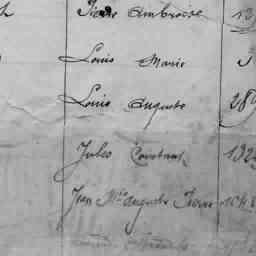 Pierre Ambroise 12
Louis Marie
Louis Auguste 289
Jules Constant 132
Jean Mie Auguste Pierre 104